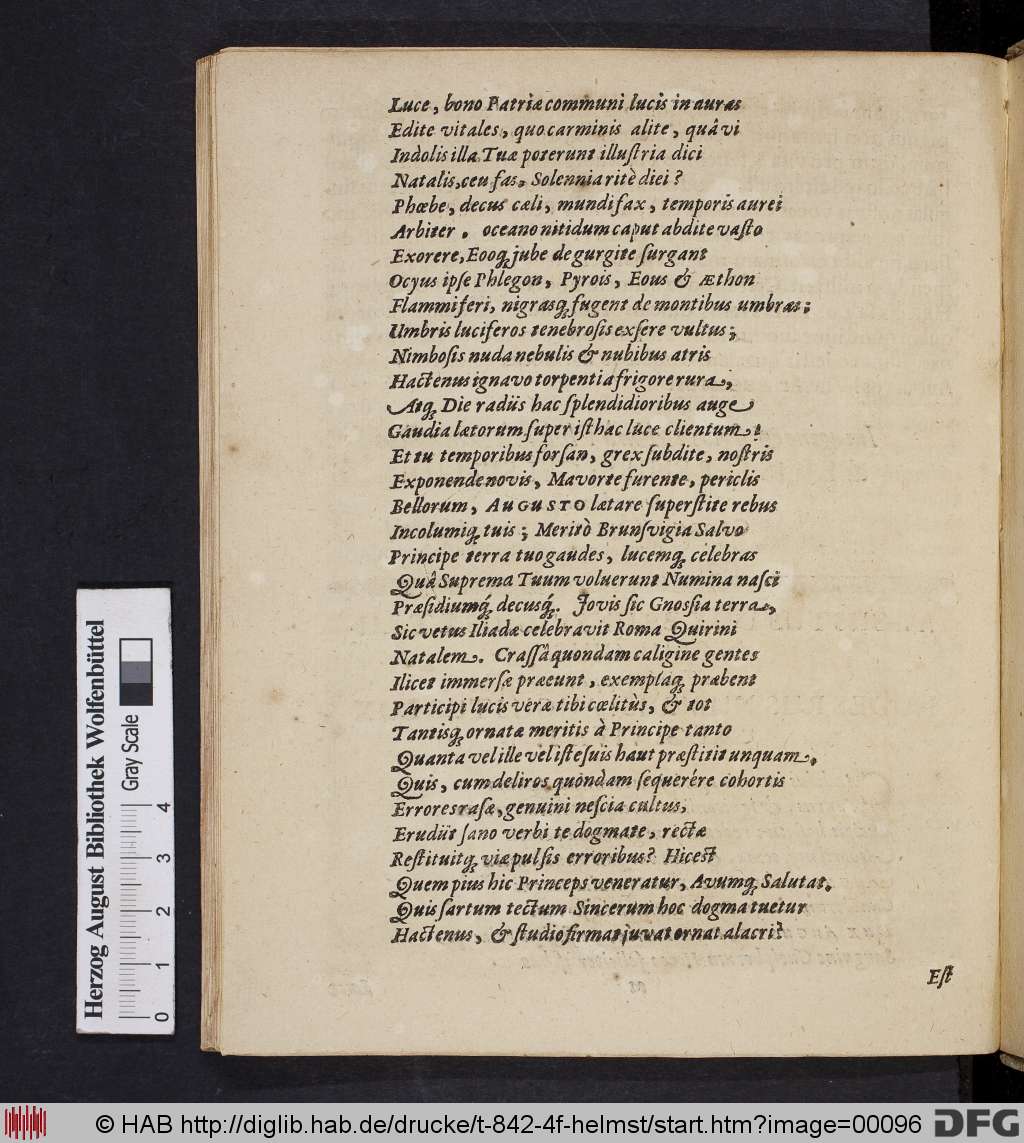 Luce, bono Patriæ communi lucis in auras
Edite vitales, quo carminis alite, quâ vi
Indolis illa Tuæ poterunt illuſtria dici
Natalis, ceu fas, Solennia ritè diei?
Phœbe, decus cæli, mundi fax, temporis aurei
Arbiter. oceano nitidum caput abdite vaſto
Exorere, Eooq́; jube de gurgite ſurgant
Ocyus ipſe Phlegon, Pyrois, Eous & Æthon
Flammiferi, nigrasq́; fugent de montibus umbras;
Umbris luciferos tenebroſis exſere vultus;
Nimboſis nuda nebulis & nubibus atris
Hactenus ignavo torpentia frigore rura,
Atq́; Die radiis hac ſplendidioribus auge
Gaudia lætorum ſuper iſthac luce clientum.!
Et tu temporibus forſan, grex ſubdite, noſtris
Exponende novis, Mavorte furente, periclis
Bellorum, AUGUSTO lætare ſuperſtite rebus
Incolumiq́; tuis; Meritò Brunſvigia Salvo
Principe terra tuo gaudes, lucemq́; celebras
Quâ Suprema Tuum voluerunt Numina naſci
Præſidiumq́; decusq́;. Jovis ſic Gnoſſia terra,
Sic vetus Iliadæ celebravit Roma Quirini
Natalem. Craſſâ quondam caligine gentes
Ilicet immerſæ præeunt, exemplaq́; præbent
Participi lucis veræ tibi cœlitùs, & tot
Tantisq́; ornatæ meritis à Principe tanto
Quanta vel ille vel iſte ſuis haut præſtitit unquam.
Quis, cum deliros quondam ſequerére cohortis
Errores raſæ, genuini neſcia cultus,
Erudiit ſano verbi te dogmate, rectæ
Reſtituitq́; viæ pulſis erroribus? Hic est
Quem pius hic Princeps veneratur, Avumq́; Salutat.
Quis ſartum tectum Sincerum hoc dogma tuetur
Hactenus, & ſtudio firmat juvat ornat alacri?
Eſt
Herzog August Bibliothek Wolfenbüttel
Gray Scale
0 1 2 3 4
© HAB http://diglib.hab.de/drucke/t-842-4f-helmst/start.htm?image=00096
DFG